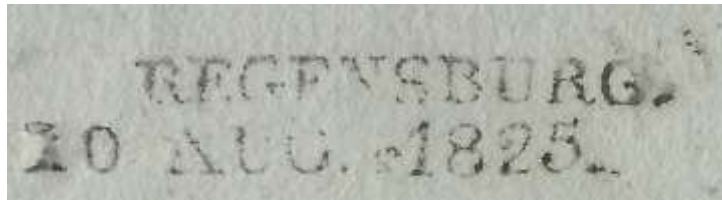 REGENSBURG.
10 AUG. 1825.